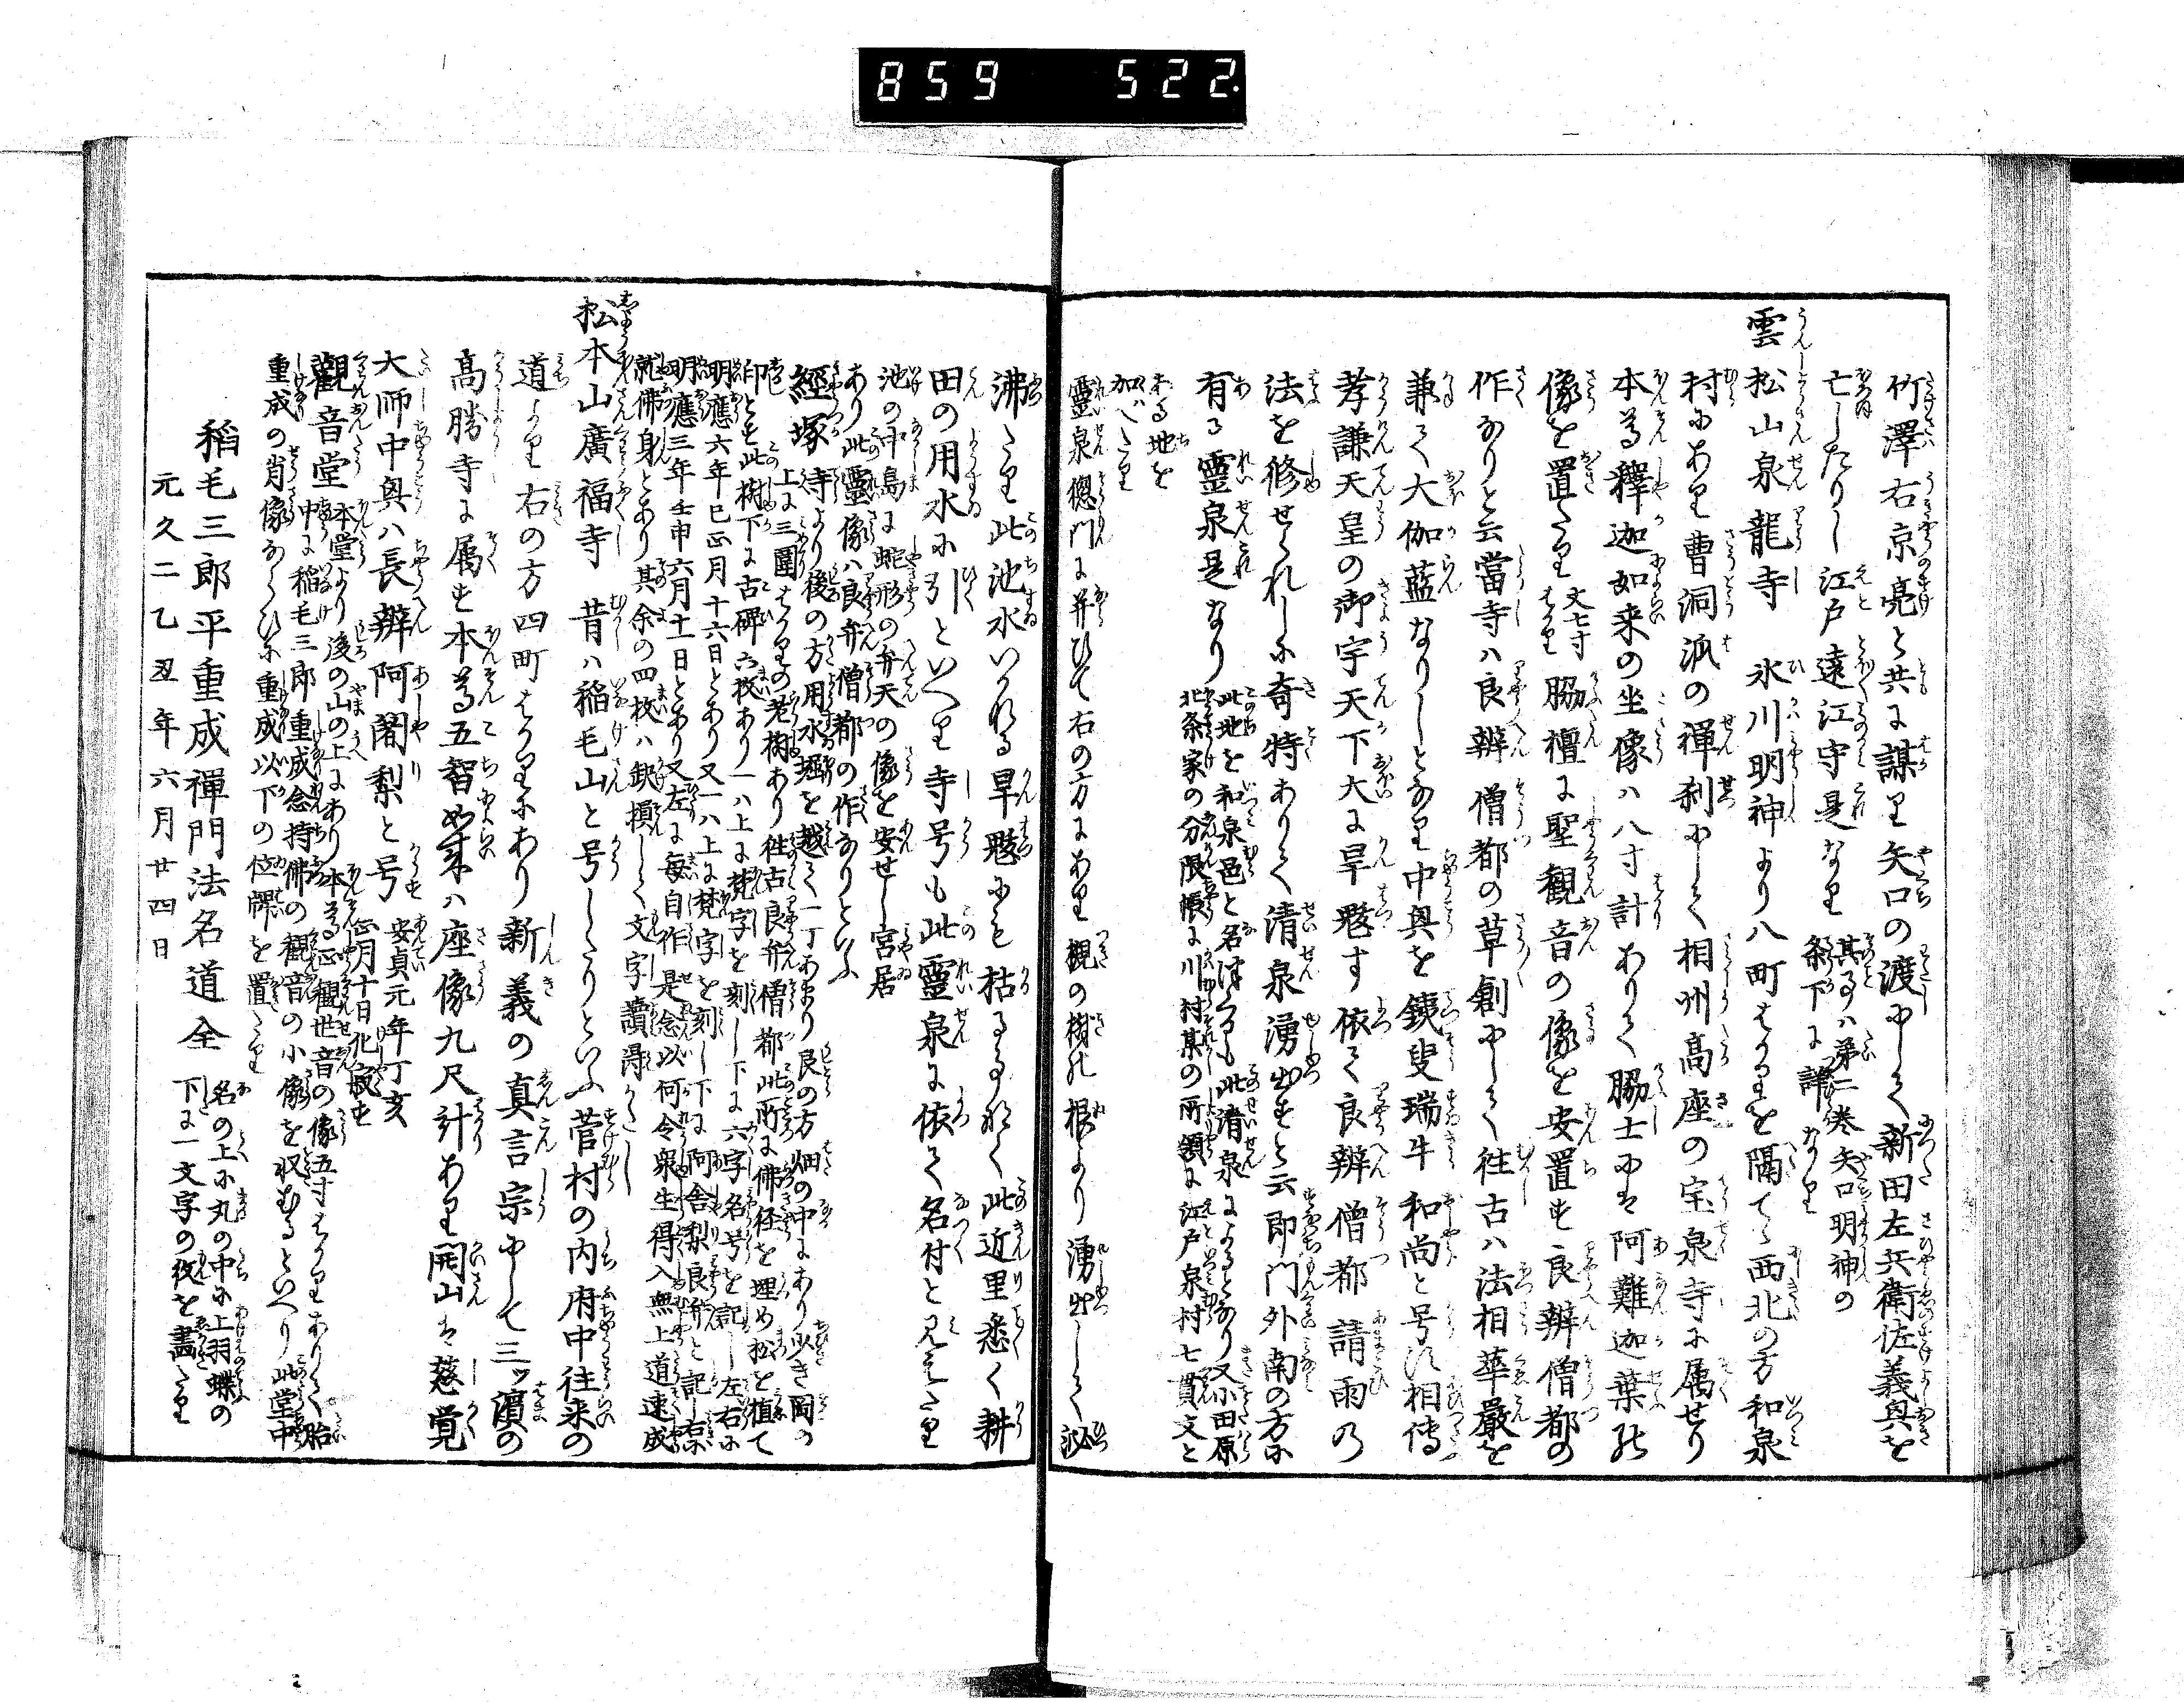 859 522.
竹澤右京亮と共に謀り矢口の渡にして新田左兵衛佐義興を
亡したりし江戸遠江守是なり
其事ハ第二巻矢口明神の
条下に詳なり
雲松山泉龍寺 氷川明神より八町はかりを隔てゝ西北の方和泉
村にあり曹洞派の禅刹にして相州高座の宝泉寺に属せり
本尊釋迦如来の坐像ハ八寸計ありて脇士にハ阿難迦葉の
像を置たり
丈七寸
はかり
脇檀に聖觀音の像を安置す良辨僧都の
作なりと云當寺ハ良辨僧都の草創にして往古ハ法相華嚴を
兼て大伽藍なりしとなり中興を鉄叟瑞牛和尚と号す相傳
孝謙天皇の御宇天下大に旱魃す依て良辨僧都請雨の
法を修せられしに奇特ありて清泉湧出すと云即門外南の方に
有る靈泉是なり
此地を和泉邑と名つくるも此清泉によるとなり又小田原
北条家の分限帳に川村某の所領に江戸泉村七貫文と
ある地を
加へたり
靈泉 總門に并ひて右の方にあり槻の樹の根より湧出して泌
沸たり此池水いかなる旱魃にも枯るゝ事なく此近里悉く耕
田の用水に引といへり寺号も此靈泉に依て名付と見えたり
池の中島に蛇形の弁天の像を安せし宮居
あり此靈像ハ良弁僧都の作なりといふ
經塚 寺より後の方用水堀を越て一丁あまり艮の方畑の中にあり少き岡の
上に三圍はかりの老樹あり往古良弁僧都此所に佛経を埋め松を植て
印とす此樹下に古碑六枚あり一ハ上に梵字を刻し下に六字名号を記し左右に
明應六年巳正月十六日とあり又一ハ上に梵字を刻し下に阿舎梨良弁と記し右に
明應三年壬申六月十一日とあり又左に毎自作是念以何令衆生得入無上道速成
就佛身とあり其余の四枚ハ欽損して文字讀得かたし
松本山廣福寺 昔ハ稲毛山と号したりといふ菅村の内府中往来の
道より右の方四町はかりにあり新義の真言宗にして三ツ濵の
髙勝寺に属す本尊五智如来ハ座像九尺計あり開山は慈覚
大師中興ハ長辨阿闍梨と号す
安貞元年丁亥
正月十日化寂す
觀音堂 本堂より後の山の上にあり本尊正觀世音の像五寸はかりありて胎
中に稲毛三郎重成念持佛の觀音の小像を収むるといへり此堂中
重成の肖像ならひに重成以下の位牌を置たり
稲毛三郎平重成禪門法名道全
名の上に丸の中に上羽蝶の
下に一文字の紋を畵たり
元久二乙丑年六月廿四日